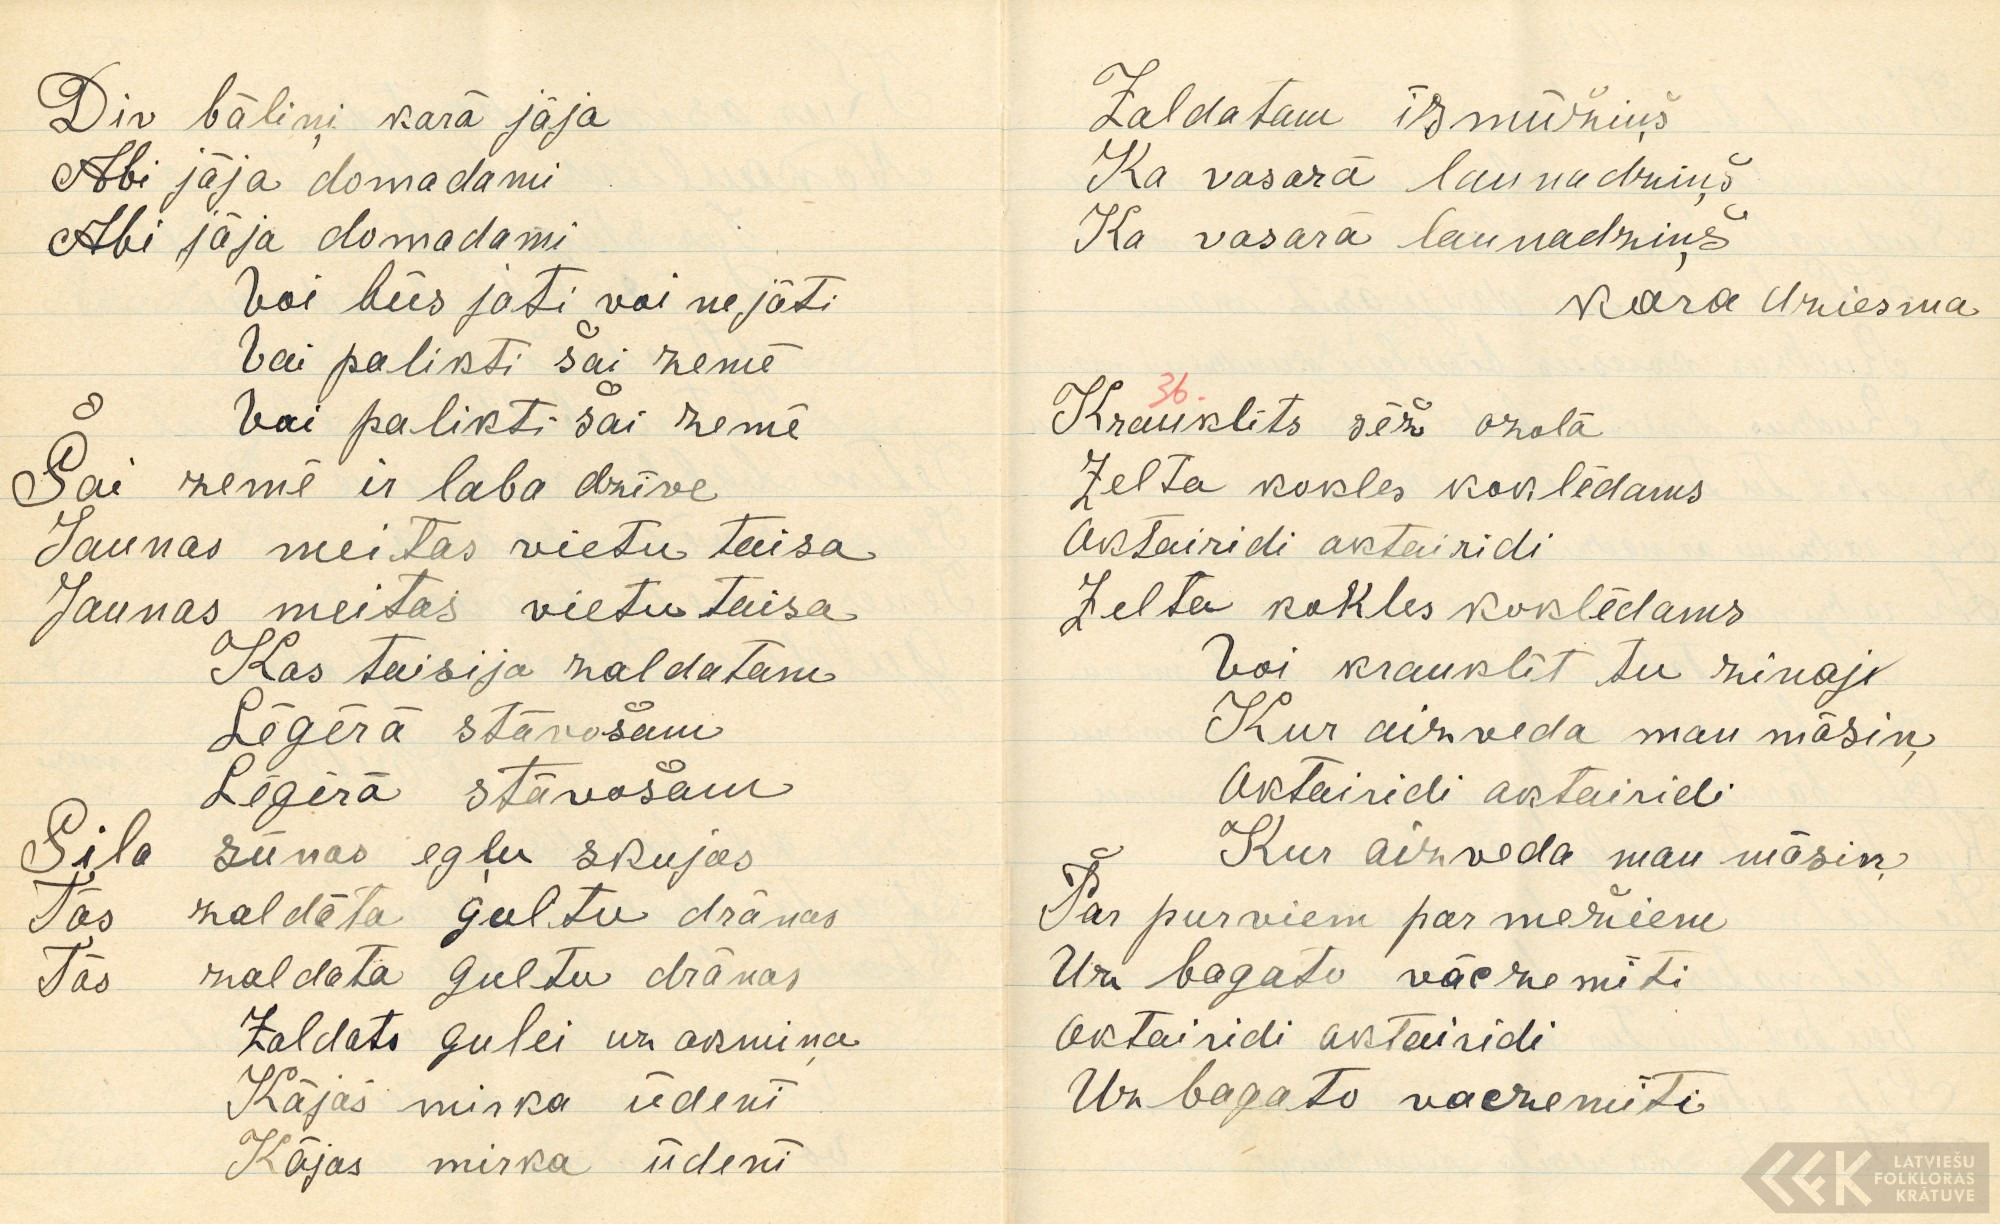 Div bāliņi karā jāja
Abi jāja domadami
Abi jāja domadami
Voi būs jāti voi nejāti
Vai palikti šai zemē
Vai palikti šai zemē
Šai zemē ir laba dzīve
Jaunas meitas vietu taisa
Jaunas meitas vietu taisa
Kas taisija zaldatam
Lēģērā stāvošam
Lēģērā stāvošam
Sila sūnas egļu skujas
Tās zaldāta gultu drānas
Tās zaldata gultu drānas
Zaldats gulei uz akmiņa
Kājas mirka ūdenī
Kājas mirka ūdenī
Zaldatam iz mūžiņš
Ka vasarā launadziņš
Ka vasarā launadziņš
kara dziesma
36.
Krauklīts sēž ozolā
Zelta kokles koklēdams
Aktairidi aktairidi
Zelta kokles koklēdams
Voi krauklīt tu zinaji
Kur aizveda man māsiņ
Aktairidi aktairidi
Kur aizveda man māsiņ
Par purviem par mežiem
Uz bagāto vāczemīti
Aktairidi aktairidi
Uz bagato vaczemīti
LATVIEŠU
FOLKLORAS
KRĀTUVE